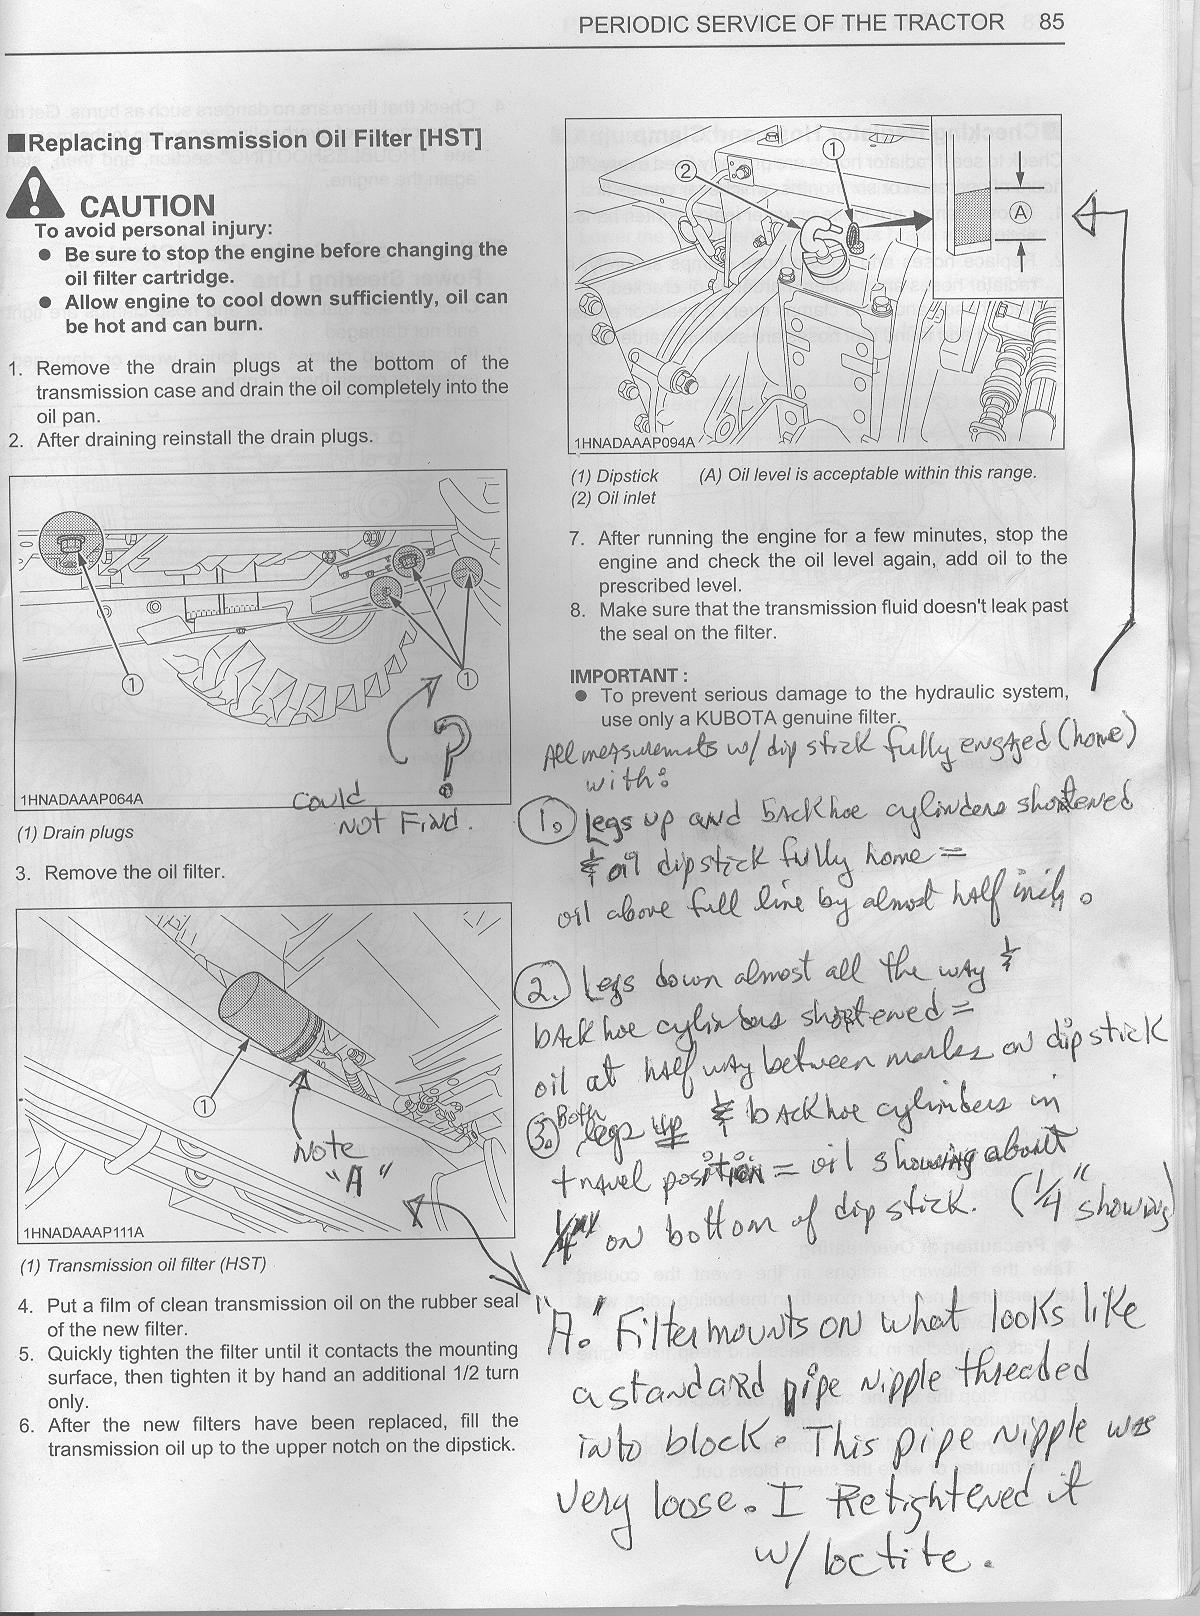 PERIODIC SERVICE OF THE TRACTOR 85
■Replacing Transmission Oil Filter [HST]
CAUTION
To avoid personal injury:
● Be sure to stop the engine before changing the
oil filter cartridge.
● Allow engine to cool down sufficiently, oil can
be hot and can burn.
1. Remove the drain plugs at the bottom of the
transmission case and drain the oil completely into the
oil pan.
2. After draining reinstall the drain plugs.
1
1
?
Could
Not Find.
1HNADAAAP064A
(1) Drain plugs
3. Remove the oil filter.
1
Note
"A"
1HNADAAAP111A
(1) Transmission oil filter (HST)
4. Put a film of clean transmission oil on the rubber seal
of the new filter.
5. Quickly tighten the filter until it contacts the mounting
surface, then tighten it by hand an additional 1/2 turn
only.
6. After the new filters have been replaced, fill the
transmission oil up to the upper notch on the dipstick.
1
2
A
1HNADAAAP094A
(1) Dipstick (A) Oil level is acceptable within this range.
(2) Oil inlet
7. After running the engine for a few minutes, stop the
engine and check the oil level again, add oil to the
prescribed level.
8. Make sure that the transmission fluid doesn't leak past
the seal on the filter.
IMPORTANT :
● To prevent serious damage to the hydraulic system,
use only a KUBOTA genuine filter.
All measurements w/ dip stick fully engaged (home)
with:
1. Legs up and backhoe cylinders shortened
& oil dipstick fully home =
oil above full line by almost half inch.
2. Legs down almost all the way &
backhoe cylinders shortened =
oil at half way between marks on dipstick
3. Both legs up & backhoe cylinders in
travel position = oil showing about
1/4" on bottom of dip stick. (1/4" showing)
"A." Filter mounts on what looks like
a standard pipe nipple threaded
into block. This pipe nipple was
very loose. I Retightened it
w/ loctite.